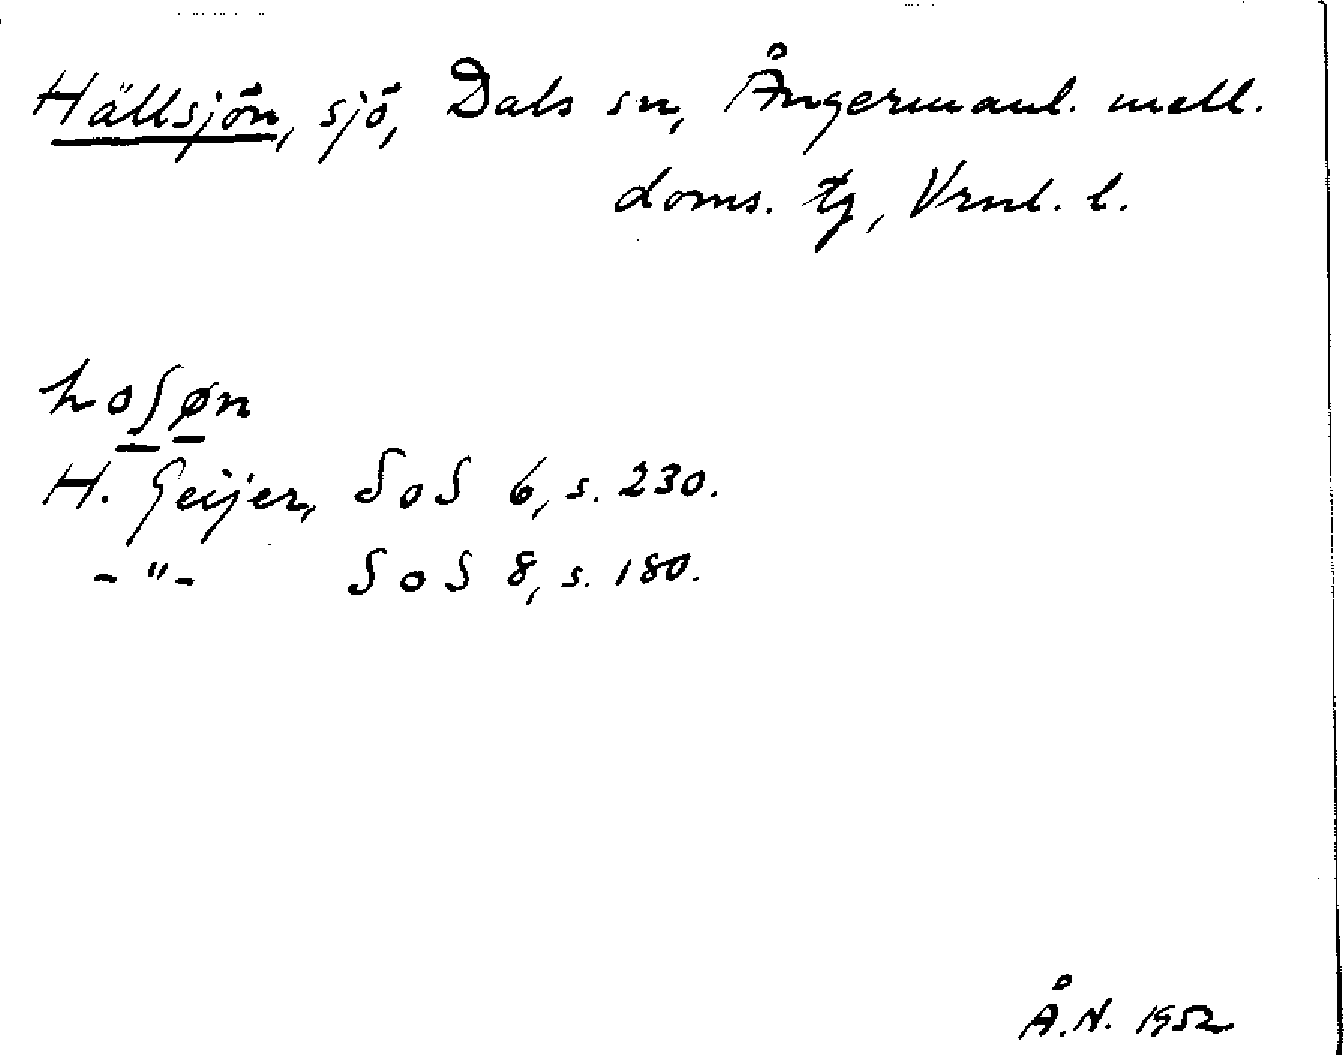 Hällsjön, sjö, Dals sn, Ångermanl. mell.
doms. tg, Vrnl. l.
hoʃøn
H. Geijer, SoS 6, s. 230.
-"- SoS 8, s. 180.
Å.N. 1952